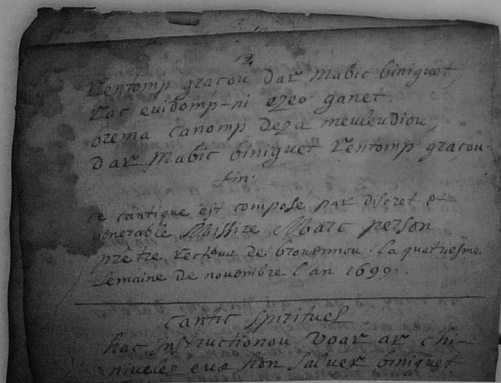 Rentomp graçou dar Mabic biniguet,
Rac euidomp-ni ezeo ganet.
brema Canomp deza meuleudiou,
dar Mabic biniguet Rentomp graçou.
fin.
ce cantique est compose par discret et
venerable Missire Marc person
prêtre recteur de brouennou. la quatresme
semaine de novembre l'an 1699.
Cantic spirituel
hac Instructionou voar ar chi-
nivelez eus hon salver biniguet